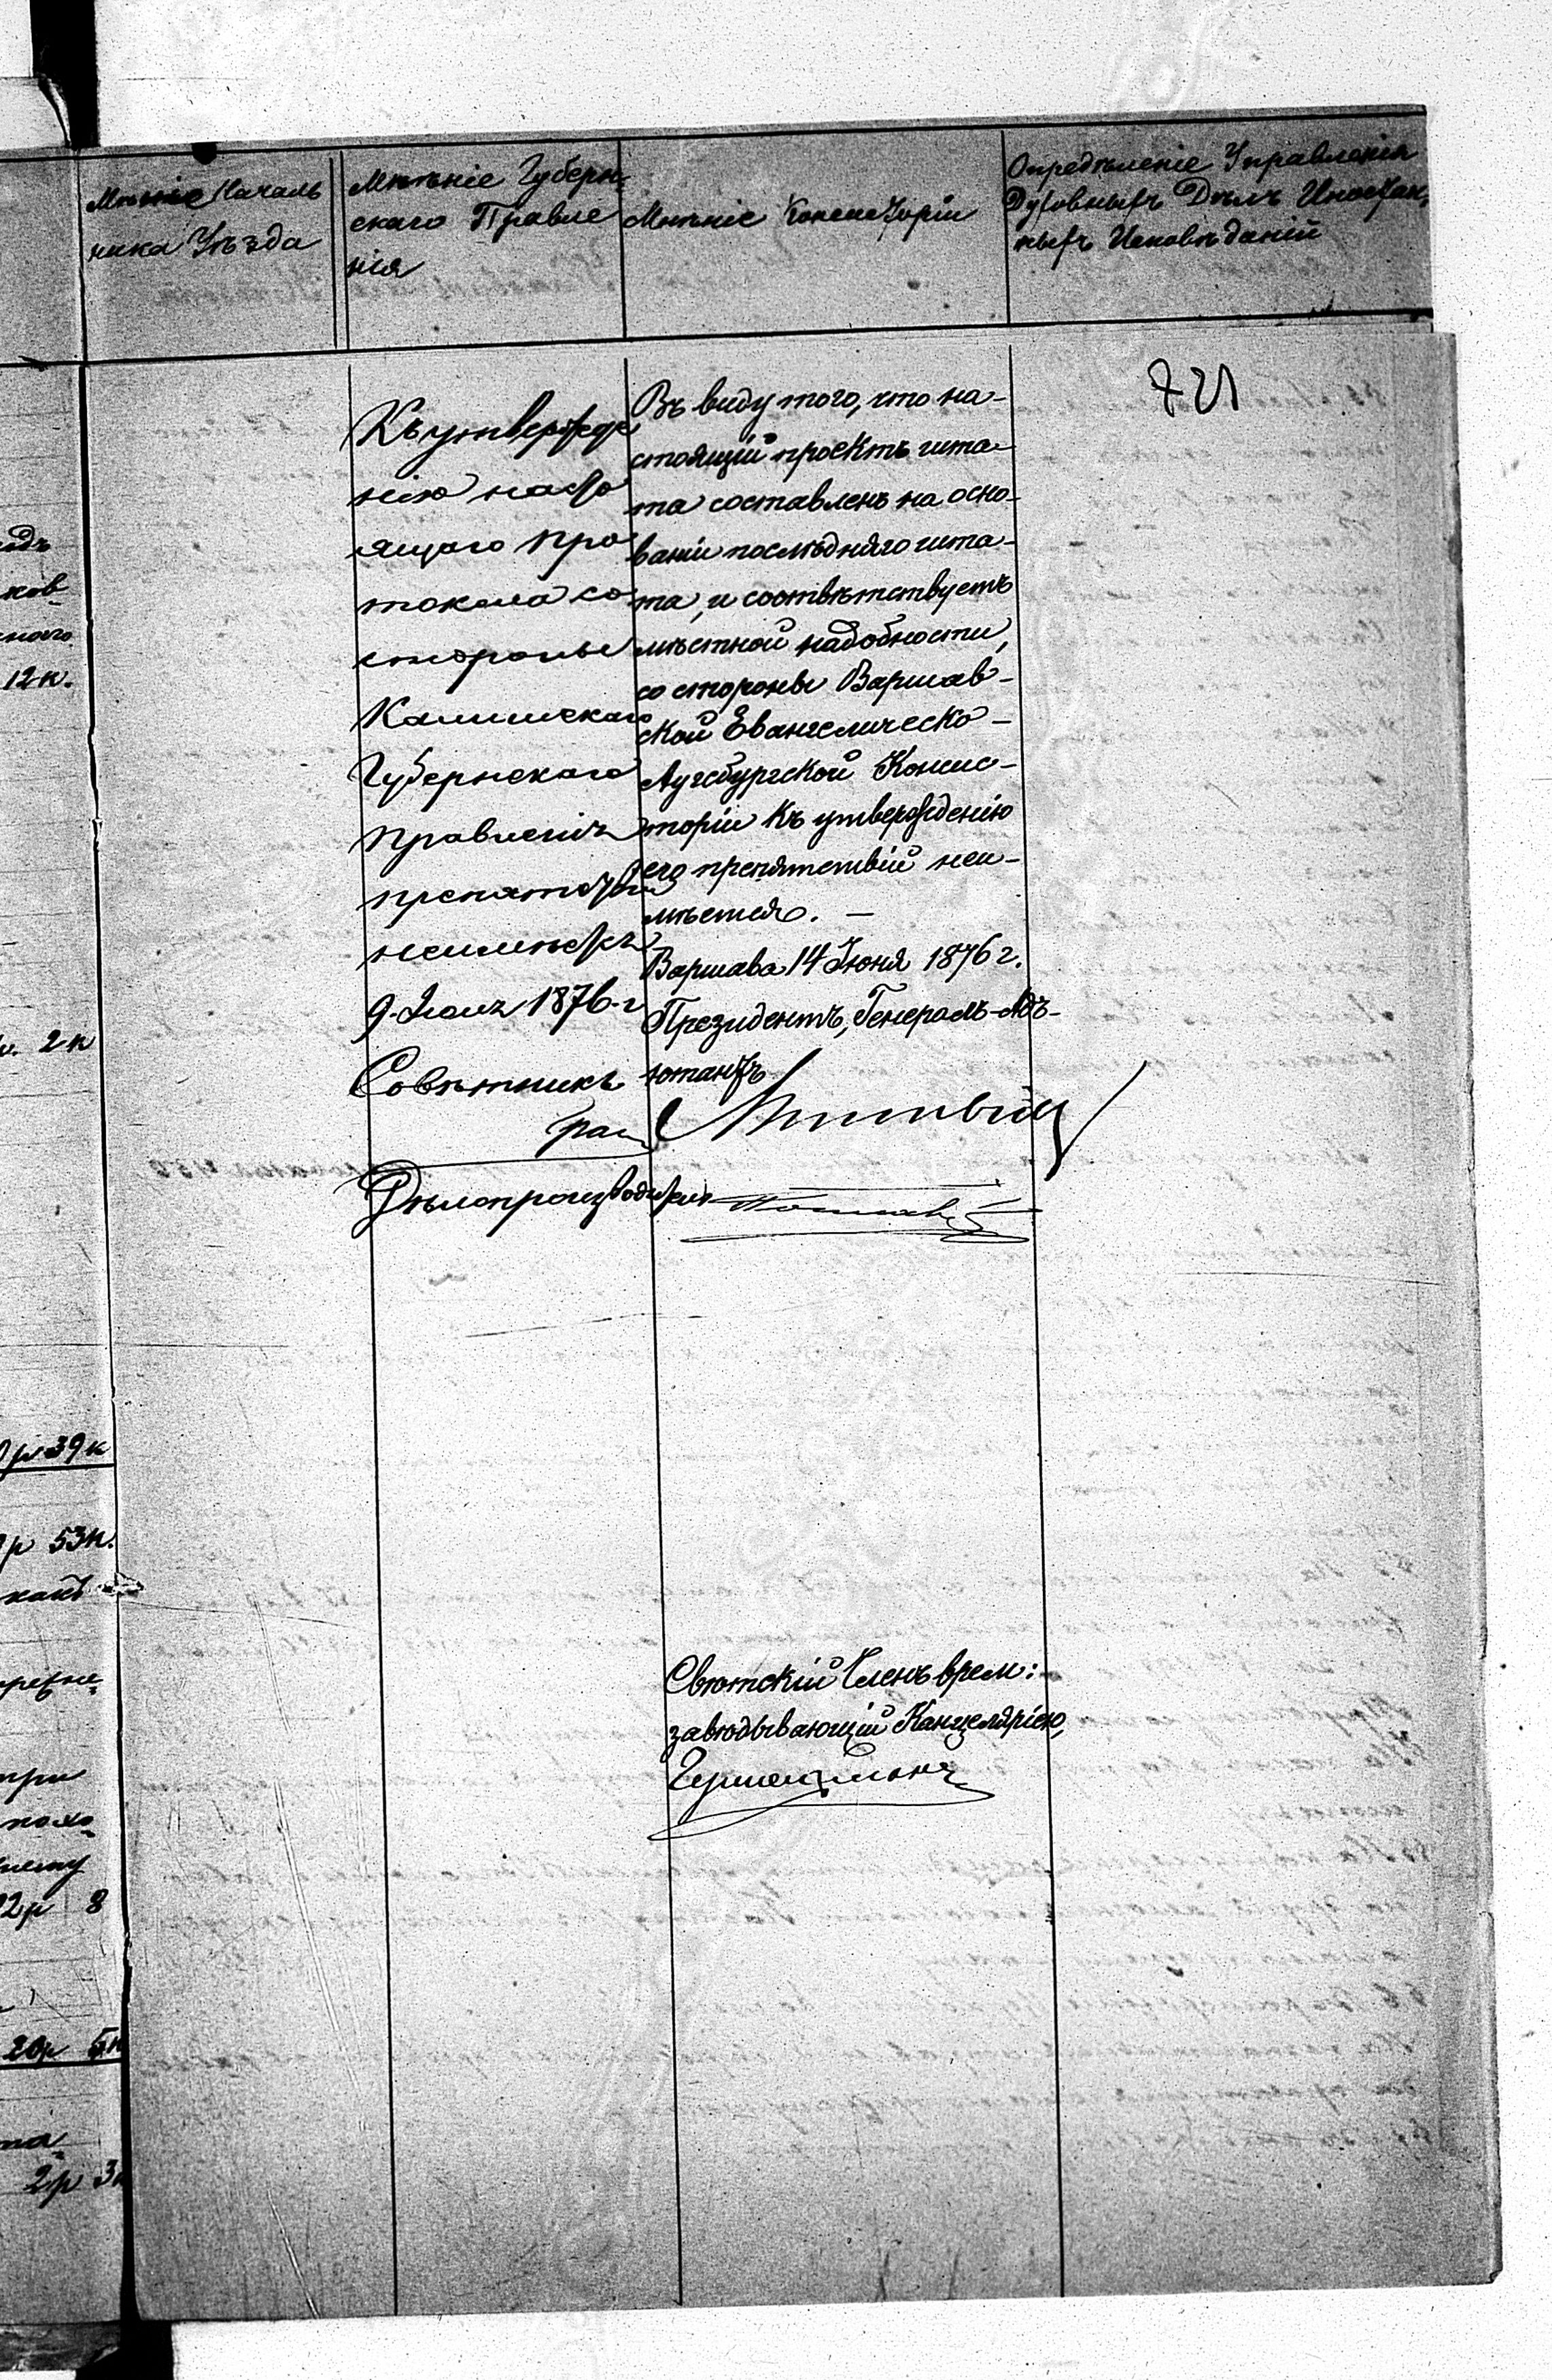 Мнѣніе Началь
ника Уѣзда
Мнѣніе Губерн-
скаго Правле
нія
Мнѣніе Консисторіи
Опредѣленіе Управленія
Духовныхъ Дѣлъ Иностран-
ныхъ Исповѣданій
721
Къ утвержде
нію насто
ящаго про
токола со
стороны
Калишскаго
Губернскаго
Правленія
препятствій
неимѣется
9 Іюля 1876 г
Совѣтникъ
Дѣлопроизводитель
Въ виду того, что на-
стоящій проектъ шта-
та составленъ на осно-
ваніи послѣдняго шта-
та, и соотвѣтствуетъ
мѣстной надобности,
со стороны Варшав-
ской Евангелическо-
Аугсбургской Консис-
торіи къ утвержденію
его препятствій неи-
мѣется. —
Варшава 14 Іюня 1876 г.
Президентъ, Генералъ-Адъ-
ютантъ
Свѣтскій Членъ врем:
завѣдывающій Канцеляріею,
12 к.
2 к
р 39 к
р 53 к.
какъ
при
2 р 8
20 р 5 к
2 р 3